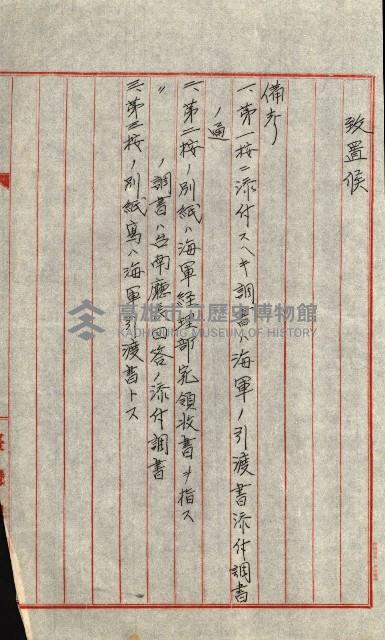 致置候
備考
一、第一按ニ添付スヘキ調書ハ海軍ノ引渡書添付調書
ノ通
二、第二按ノ別紙ハ海軍経理部宛領收書ヲ指ス
〃ノ調書ハ台南廳長回答ノ添付調書
三、第三按ノ別紙寫ハ海軍引渡書トス
高雄市立歷史博物館
KAOHSIUNG MUSEUM OF HISTORY